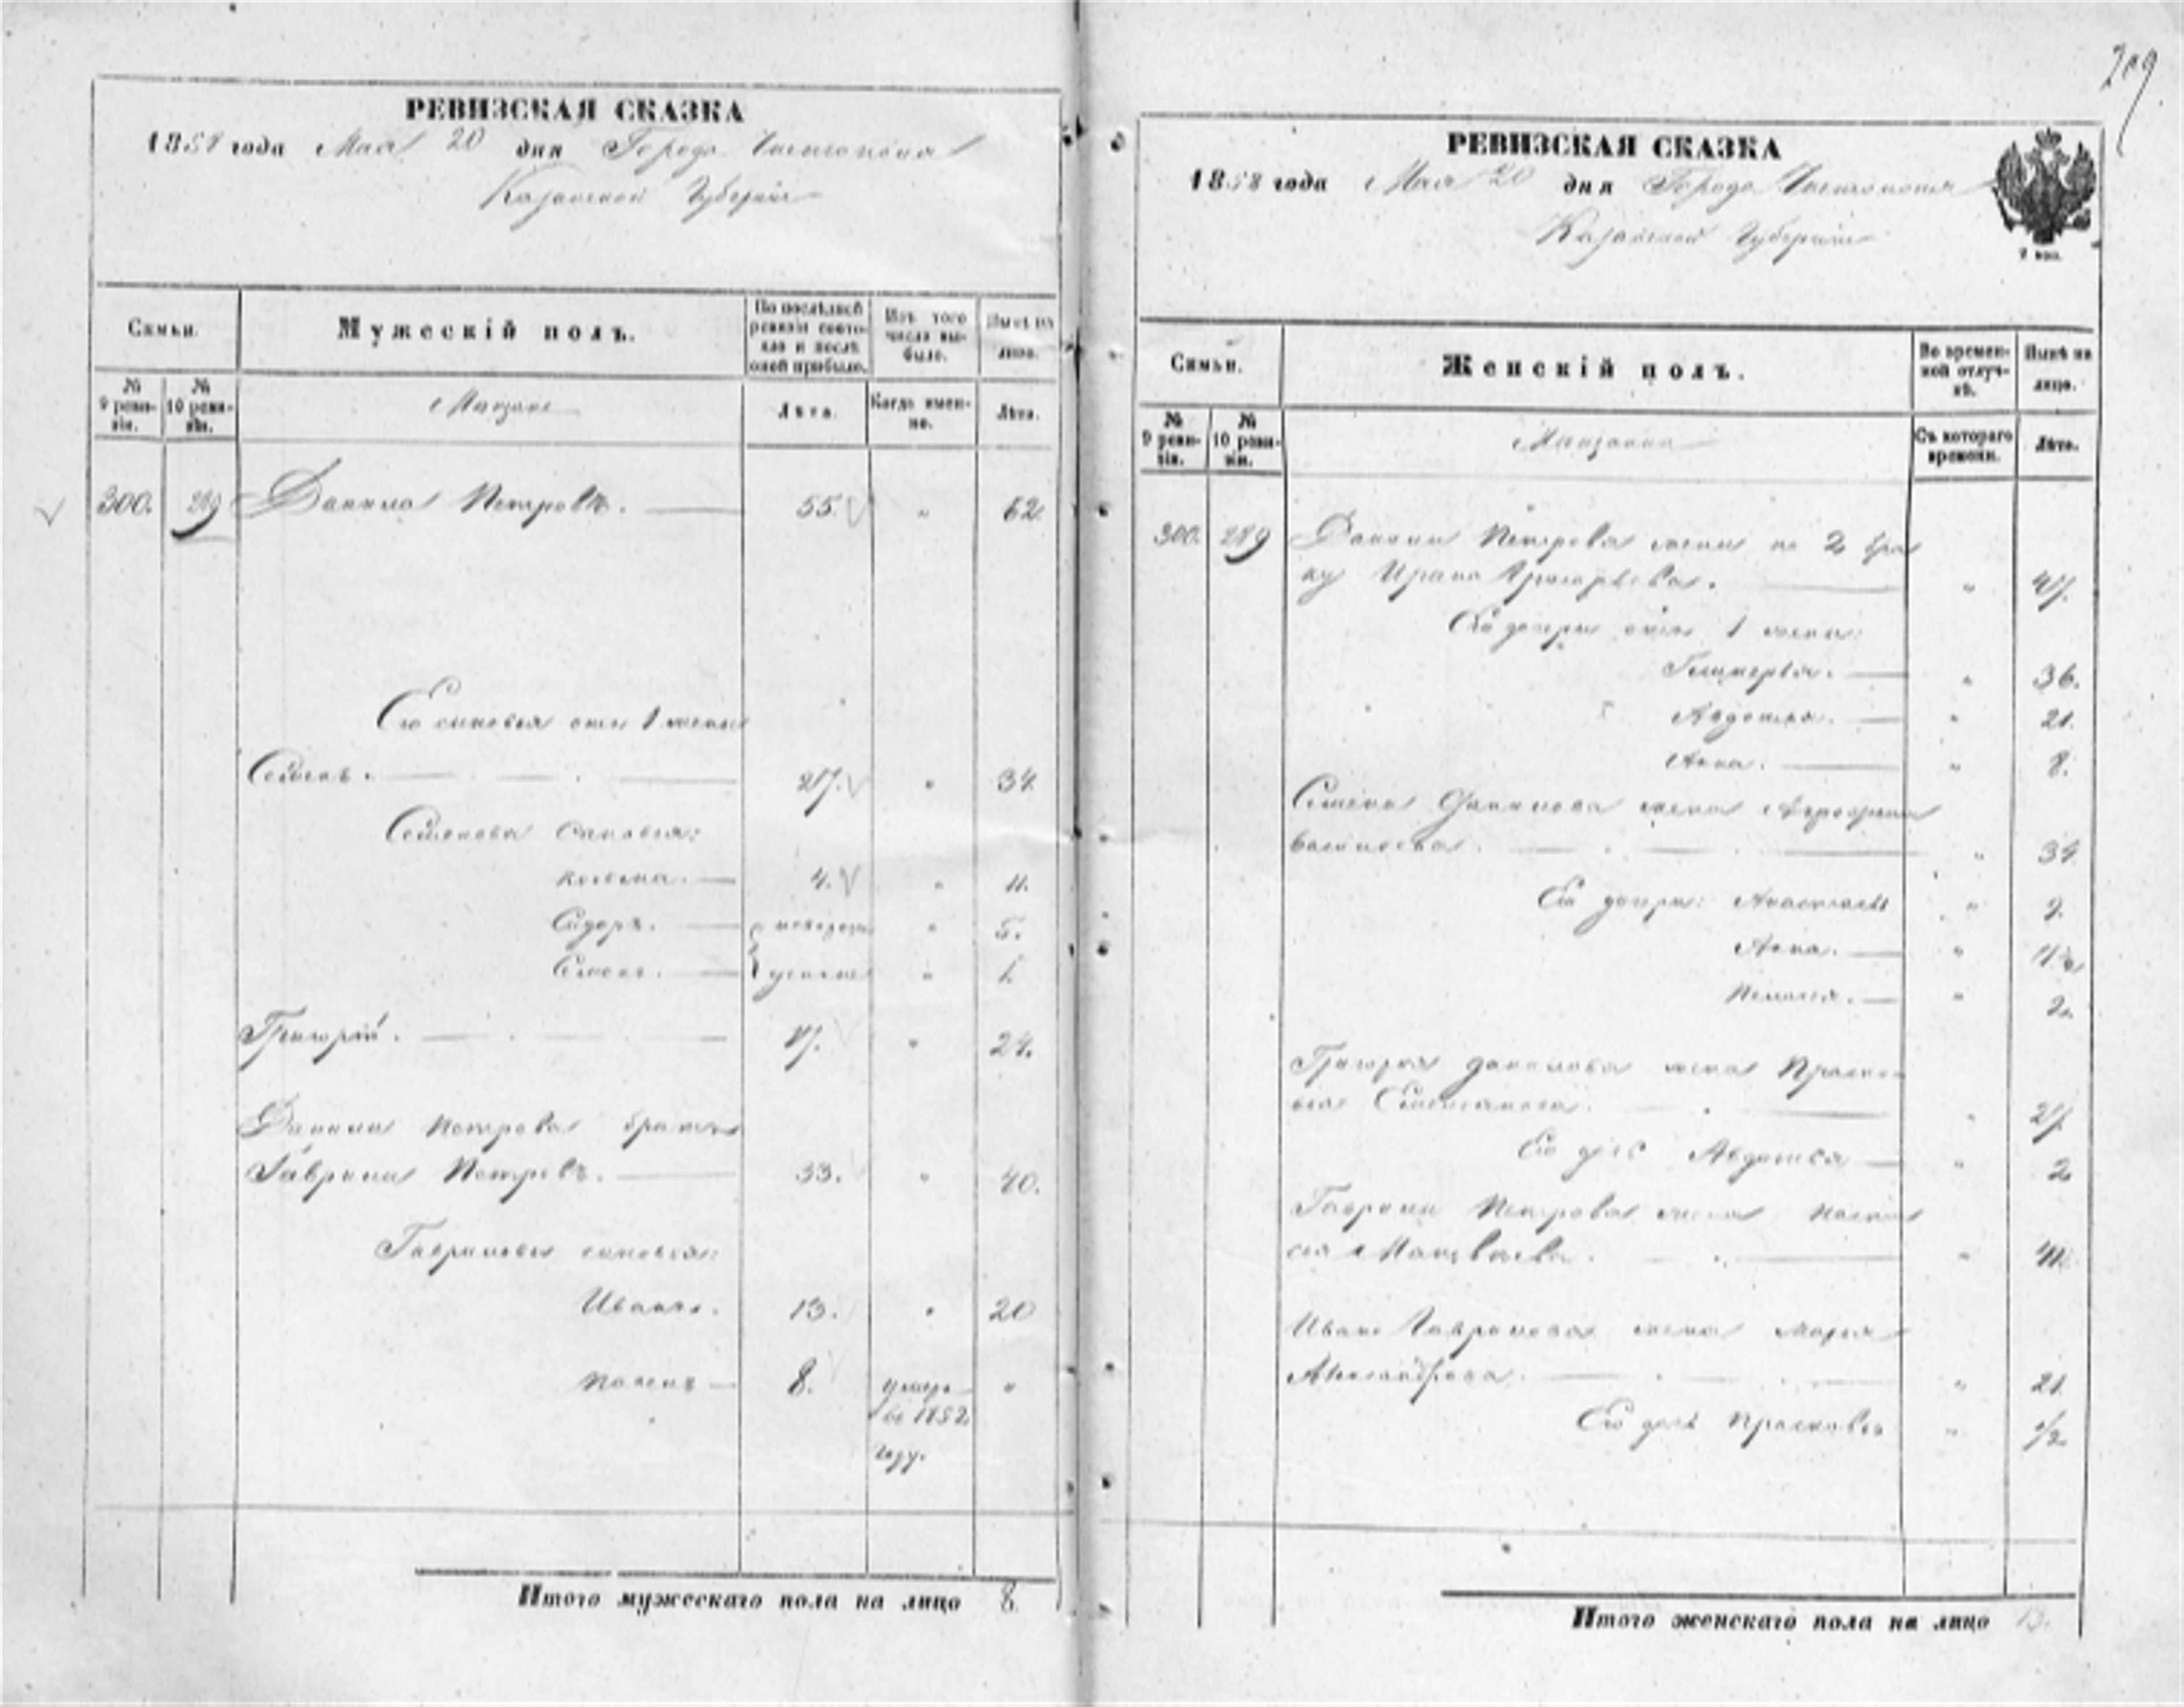 209
РЕВИЗСКАЯ СКАЗКА
1858 года Мая 20 дня Города Чистополя
Казанской Губернии
Семьи.
Мужескій полъ.
По послѣдней ревизіи состояло и послѣ оной прибыло.
Изъ того числа выбыло.
Нынѣ на лицо.
№ 9 ревизіи.
№ 10 ревизіи.
Мещане
Лѣта.
Когда именно.
Лѣта.
300. 289 Данила Петровъ. 55. " 62.
Его сыновья отъ 1 жены
Семенъ. 27. " 34.
Семеновы сыновья:
Козьма. 4. " 11.
Сидоръ. " 5.
Семенъ. " 1.
Григорій. 17. " 24.
Данилы Петрова братъ
Гаврила Петровъ. 33. " 40.
Гавриловы сыновья:
Иванъ. 13. " 20
8. умеръ "
въ 1852
году.
Итого мужескаго пола на лицо 8
РЕВИЗСКАЯ СКАЗКА
1858 года Мая 20 дня Города Чистополя
Казанской Губернии
2 коп.
Семьи.
Женскій полъ.
Во временной отлучкѣ.
Нынѣ на лицо.
№ 9 ревизіи.
№ 10 ревизіи.
Мещанки
Съ котораго времени.
Лѣта.
300. 289 Данилы Петрова жена по 2 бра
ку Ирина Григорьева. " 47.
Его дочери отъ 1 жены:
" 36.
Авдотья. " 21.
Анна. " 8.
Семена Данилова жена Агрофена
Васильева. " 34.
Его дочери: Анастасья " 9.
Анна. "
Пелагея. " 2.
Григорья Данилова жена Праско
вья " 27.
Его дочь Авдотья " 2
Гаврилы Петрова жена Настас
ья Матвѣева. " 41.
Ивана Гаврилова жена Марья
Александрова. " 21.
Его дочь Прасковья " 1/2
Итого женскаго пола на лицо 13.